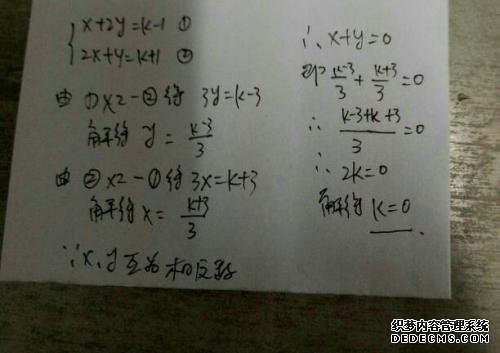 { x+2y=k-1 ①
2x+y=k+1 ②
由 ①×2-②得 3y=k-3
解得 y = (k-3)/3
由 ②×2-①得 3x=k+3
解得 x= (k+3)/3
∵x、y互为相反数
∴x+y=0
即 (k-3)/3 + (k+3)/3 =0
∴ (k-3+k+3)/3 =0
∴ 2k=0
解得 k=0.
织梦内容管理系统
DEDECMS.COM